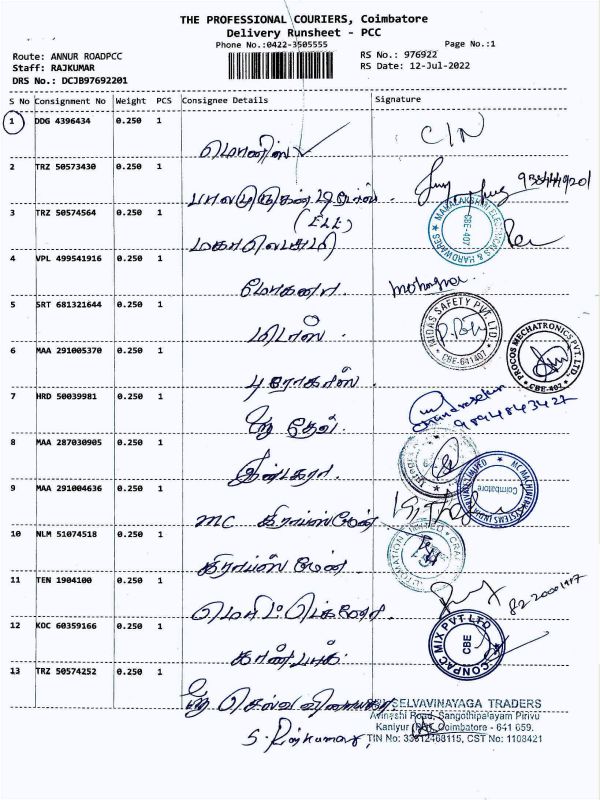 THE PROFESSIONAL COURIERS, Coimbatore
Delivery Runsheet - PCC
Phone No.:0422-3505555
Page No.:1
Route: ANNUR ROADPCC
Staff: RAJKUMAR
DRS No.: DCJB97692201
RS No.: 976922
RS Date: 12-Jul-2022
S No Consignment No Weight PCS Consignee Details Signature
1 DDG 4396434 0.250 1
C/N
2 TRZ 50573430 0.250 1
(ELE)
3 TRZ 50574564 0.250 1
MAHALAKSHMI ELECTRICALS & HARDWARES CBE-407
மகாலெட்சுமி
4 VPL 499541916 0.250 1
மோகனா
5 SRT 681321644 0.250 1
MIDAS SAFETY PVT. LTD. CBE-641407
மிடாஸ்
6 MAA 291005370 0.250 1
PROCOS MECHATRONICS PVT. LTD. CBE-407
7 HRD 50039981 0.250 1
Chandrasekar
9894843427
ஜே தேவ்
8 MAA 287030905 0.250 1
9 MAA 291004636 0.250 1
MC MACHINERY SYSTEMS INDIA PRIVATE LIMITED Coimbatore
MC கிராப்ஸ்மேன்
10 NLM 51074518 0.250 1
கிராப்ஸ் மேன்
11 TEN 1904100 0.250 1
12 KOC 60359166 0.250 1
CONPAC MIX PVT LTD CBE
கான்பாக்
13 TRZ 50574252 0.250 1
ஸ்ரீ செல்வ விநாயகா
SRI SELVAVINAYAGA TRADERS
Avinashi Road, Sangothipalayam Pirivu
Kaniyur Coimbatore - 641 659.
S. Rajkumar
CST No: 1108421